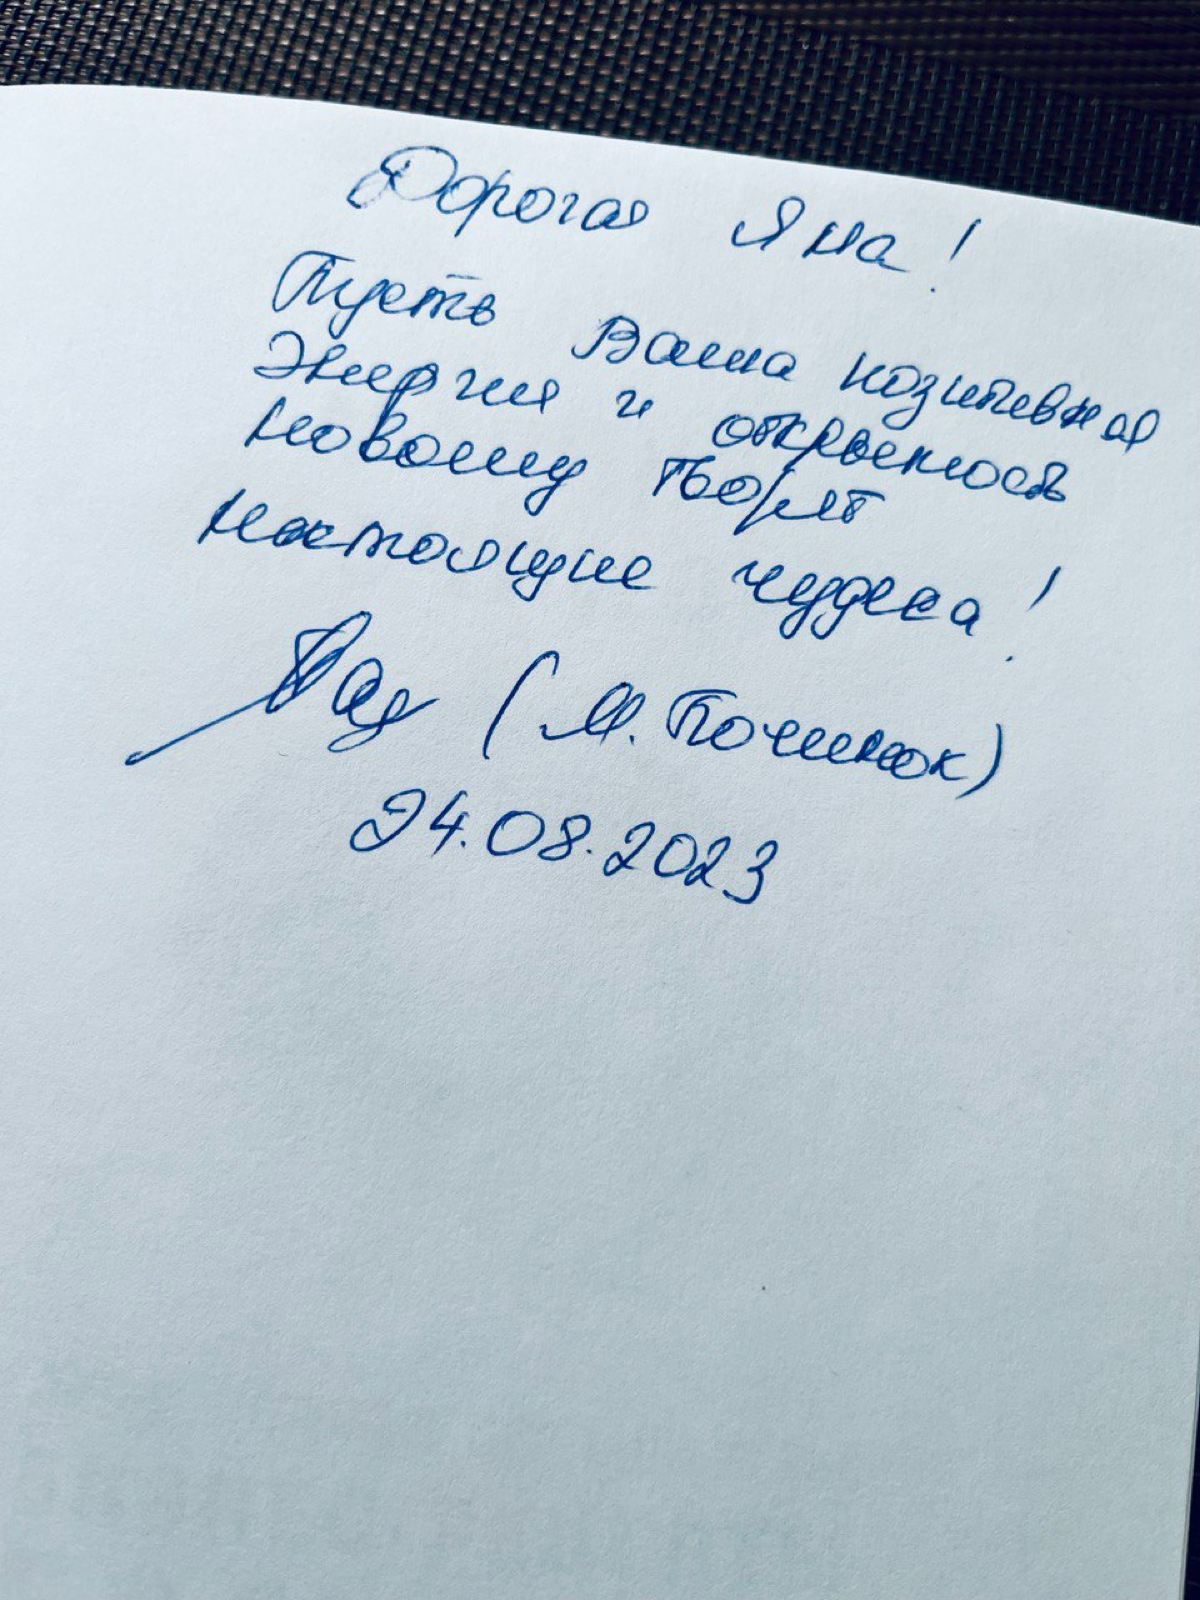 Дорогая Яна!
Пусть Ваша позитивная
энергия и открытость
новому творят
настоящие чудеса!
(М. Починок)
24.08.2023